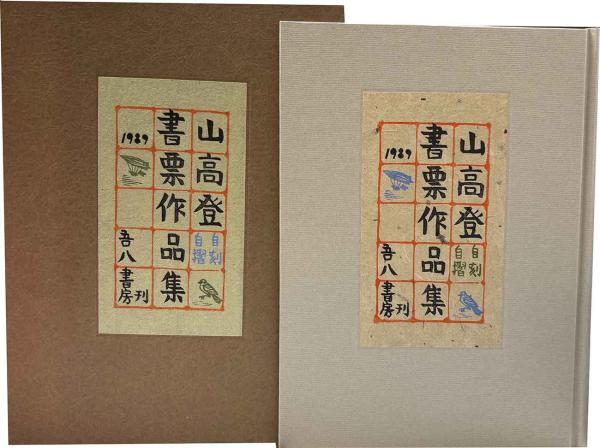 山高登
自刻
自摺
書票作品集
1989
吾八
書房刊
山高登
自刻
自摺
書票作品集
1989
吾八
書房刊